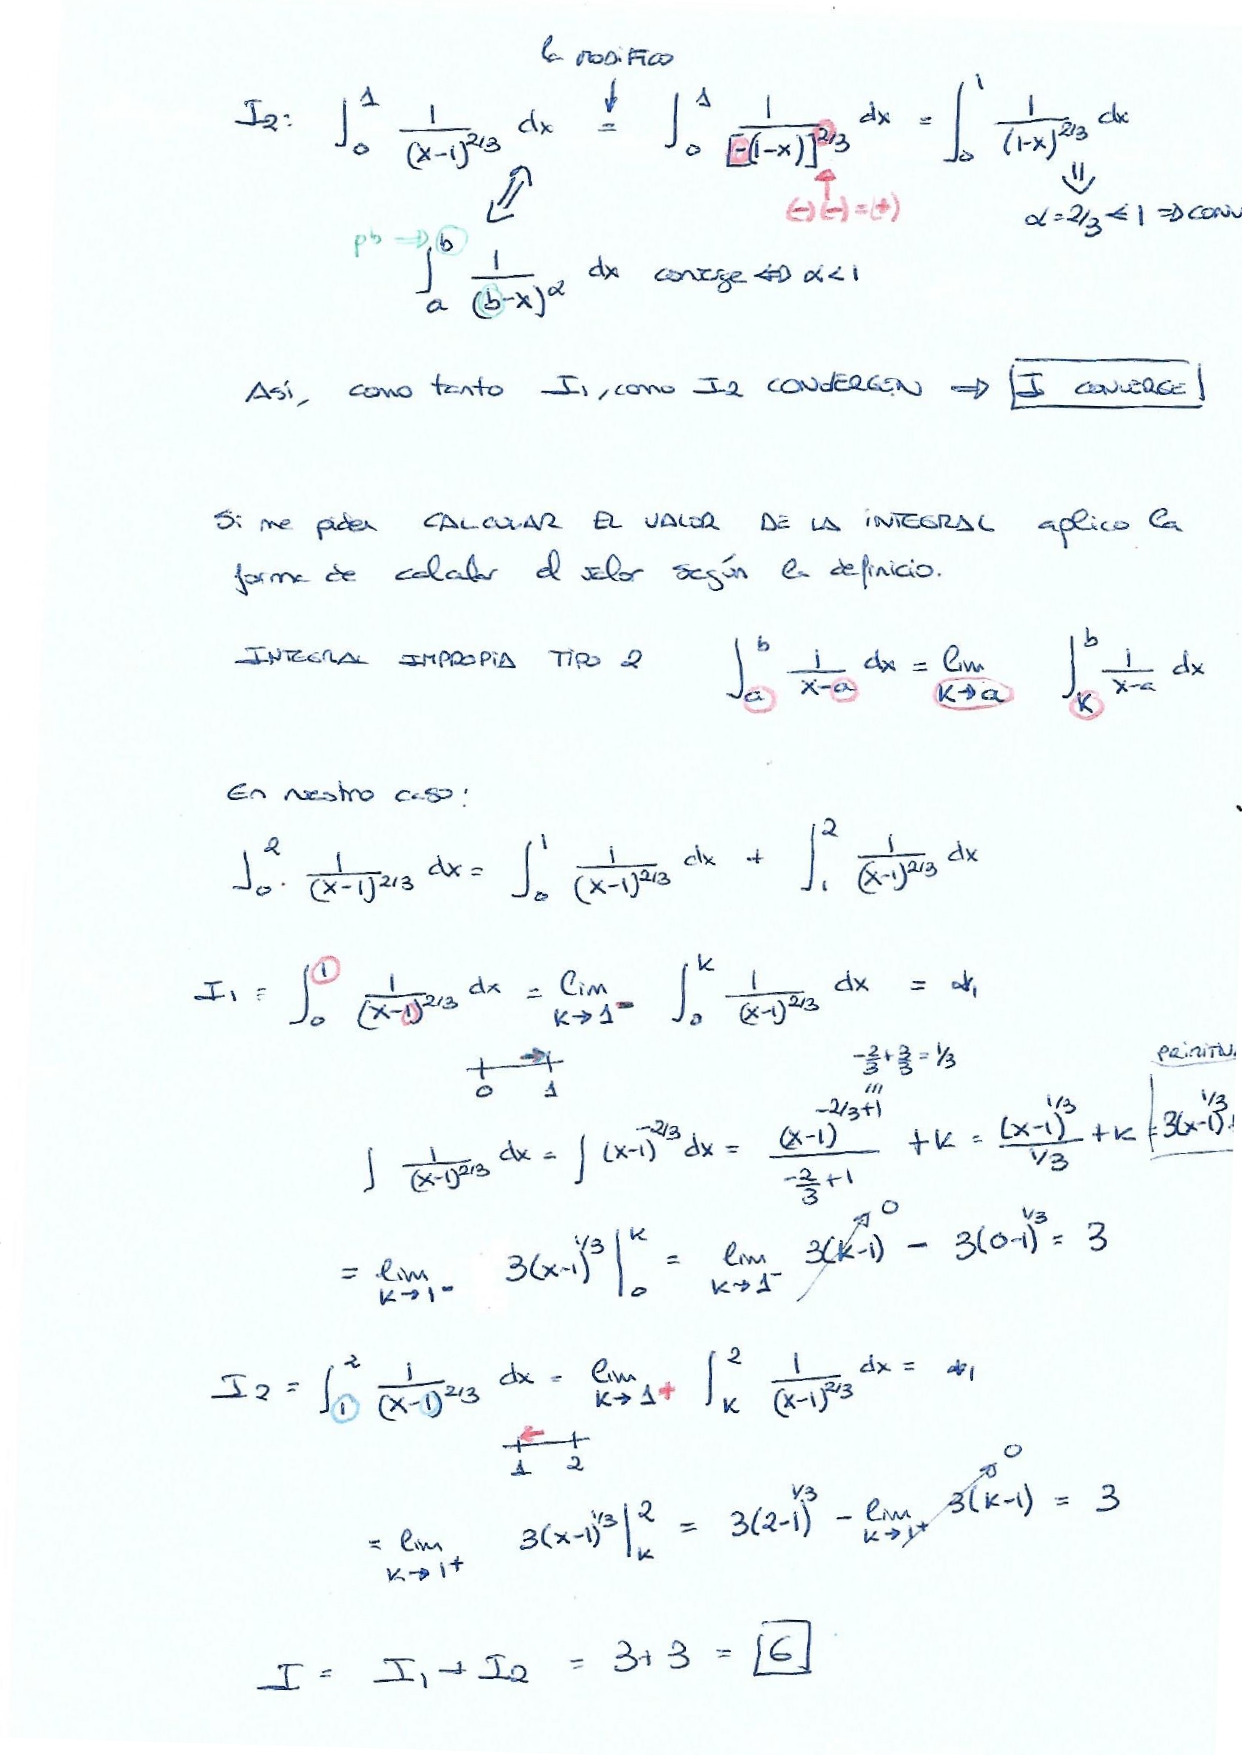 la modifico
I2: ∫_0^1 1/(x-1)^{2/3} dx = ∫_0^1 1/[-(1-x)]^{2/3} dx = ∫_0^1 1/(1-x)^{2/3} dx
(-)(-)=(+)
α=2/3<1 ⇒ conv
pb ⇒
∫_a^b 1/(b-x)^α dx converge ⇔ α<1
Así, como tanto I1, como I2 CONVERGEN ⇒ I CONVERGE
Si me piden CALCULAR EL VALOR DE LA INTEGRAL aplico la
forma de calcular el valor según la definicio.
INTEGRAL IMPROPIA TIPO 2 ∫_a^b 1/(x-a) dx = lim_{k→a} ∫_k^b 1/(x-a) dx
En nuestro caso:
∫_0^2 1/(x-1)^{2/3} dx = ∫_0^1 1/(x-1)^{2/3} dx + ∫_1^2 1/(x-1)^{2/3} dx
I1 = ∫_0^1 1/(x-1)^{2/3} dx = lim_{k→1^-} ∫_0^k 1/(x-1)^{2/3} dx = *1
0 1
-2/3+3/3=1/3
∫ 1/(x-1)^{2/3} dx = ∫ (x-1)^{-2/3} dx = (x-1)^{-2/3+1}/(-2/3+1) + k = (x-1)^{1/3}/(1/3) + k = 3(x-1)^{1/3}
= lim_{k→1^-} 3(x-1)^{1/3} |_0^k = lim_{k→1^-} 3(k-1) → 0 - 3(0-1)^{1/3} = 3
I2 = ∫_1^2 1/(x-1)^{2/3} dx = lim_{k→1^+} ∫_k^2 1/(x-1)^{2/3} dx = *1
1 2
= lim_{k→1^+} 3(x-1)^{1/3} |_k^2 = 3(2-1)^{1/3} - lim_{k→1^+} 3(k-1) → 0 = 3
I = I1 + I2 = 3+3 = 6